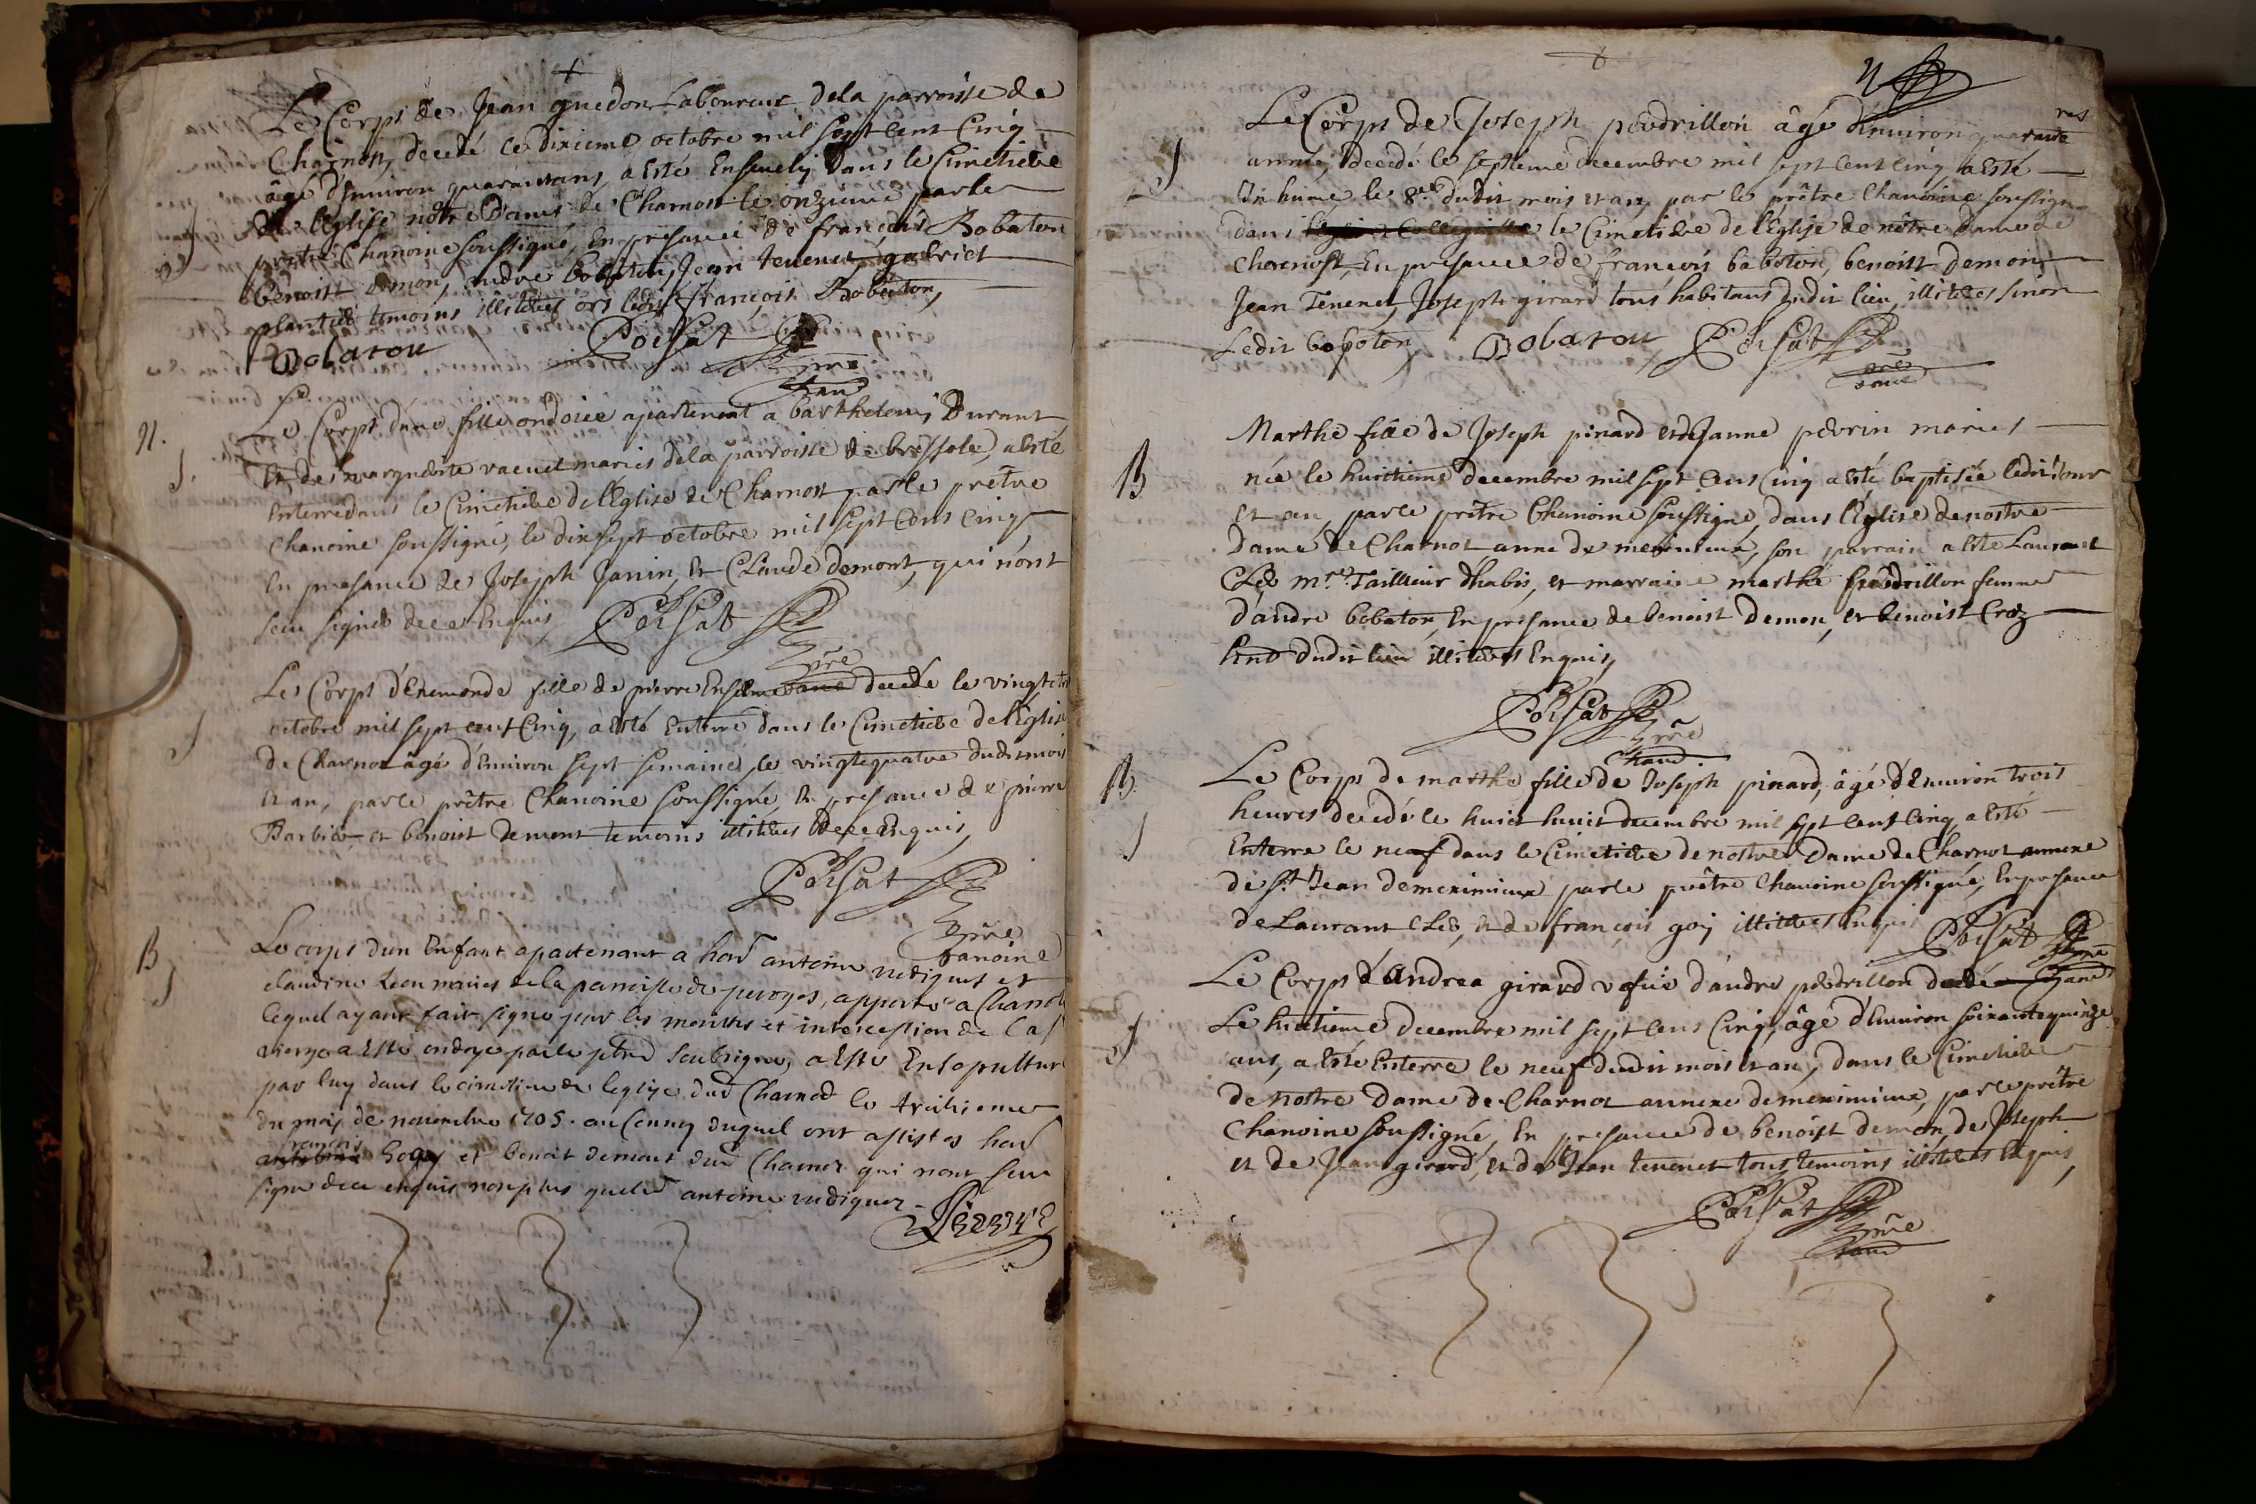 Le Corps de Jean guedon Laboureur dela parroisse de
Charnost, decedé le dixieme octobre mil sept cent Cinq
âgé d'Environ quarant ans, a Esté Ensevely dans le Cimetiere
de l'Eglise nôtre Dame de Charnost le onzieme par le
prêtre Chanoine soussigné, En presance de françois Bobaton
benoist demon, andre bobaton, Jean tenenet, gabriel
plantier temoins illitères ors ledit françois Bobaton,
Bobaton Poisat
pre
Chan
N.
Le Corps d'une fille ondoiée apartenant a barthelemy Durant
Et de marguerite vacuel mariés dela parroisse de bressole, a Esté
S.
Enterré dans le Cimetiere de l'Eglise de Charnost par le prêtre
Chanoine soussigné, le dix sept octobre mil sept Cens Cinq
En presance de Joseph Janin, Et Claude demont, qui n'ont
sceu signer de ce Enquis, Poisat
pre
Chane
Le Corps d'Enemonde fille de pierre decedé le vingt et
S
octobre mil sept cent Cinq, a Esté Enterré dans le Cimetiere de l'Eglise
de Charnoz âgé d'Environ sept semaines, le vingtequatre dudit mois
Et an, par le prêtre Chanoine soussigné En presance de pierre
Barbier et benoist demont temoins illitères de ce Enquis,
Poisat
pre
Chanoine
B
Le corps d'un Enfant apartenant a hond antoine rudiguet et
S
claudine Leon mariés de la parroisse de peroges, apporté a Charnoz
lequel ayant fait signe par les merites et intercession de la S
vierge a Esté ondoye par le pbre soubsigné, a Esté Ensepulturé
par luy dans le cimetiere de leglise dud Charnoz le treizieme
du mois de novembre 1705. au Convoy duquel ont assistes hond
francois
et benoit demont dud Charnoz qui nont sceu
signe de ce enquis non plus que led antoine rudiguez
N
Le Corps de Joseph poudrillon âgé d'Environ quarante
S
années, decedé le septieme decembre mil sept cent cinq a Esté
Inhumé le 8e dudit mois et an, par le prêtre Chanoine soussigné
dans le Cimetiere de l'Eglise de nôtre dame de
Charnost, En presance de francois baboton, benoist demon,
Jean Tenenet, Joseph girard tous habitans dudit lieu, illitères sinon
Ledit boboton, Bobaton Poisat
pre
Chane
Marthe fille de Joseph pinard et de Janne perrin mariés
B
née le huictieme decembre mil sept Cens Cinq a Esté baptisée ledit jour
et an, par le prêtre Chanoine soussigné, dans l'Eglise de nostre
Dame de Charnoz annexe de meximieux, son parrain a Esté Laurant
Cler mre Tailleur d'habis, et marraine marthe poudrillon femme
d'andre bobaton, En presance de benoist demon, et benoist Croz
dudit lieu illitères Enquis,
Poisat
pre
Chane
B.
Le Corps de marthe fille de Joseph pinard, âgé d'Environ trois
S
heures decedé le huict decembre mil sept cens Cinq a Esté
Enterré le neuf dans le Cimetiere de nostre Dame de Charnoz annexe
de St Jean de meximieux par le prêtre Chanoine soussigné, En presance
de Laurant Cler, et de françois goy illitères Enquis Poisat
pre
Chane
Le Corps d'andrea girard vefue d'andre poudrillon decedé
S
Le huictieme decembre mil sept Cens Cinq, âgé d'Environ soixante quinze
ans, a Esté Enterré le neuf dudit mois et an, dans le Cimetiere
de nostre dame de Charnoz annexe de meximieux, par le prêtre
Chanoine soussigné, En presance de benoist demon, de Joseph
et de Jean girard, et de Jean tenenet tous temoins illitères Enquis,
Poisat
pre
Chane